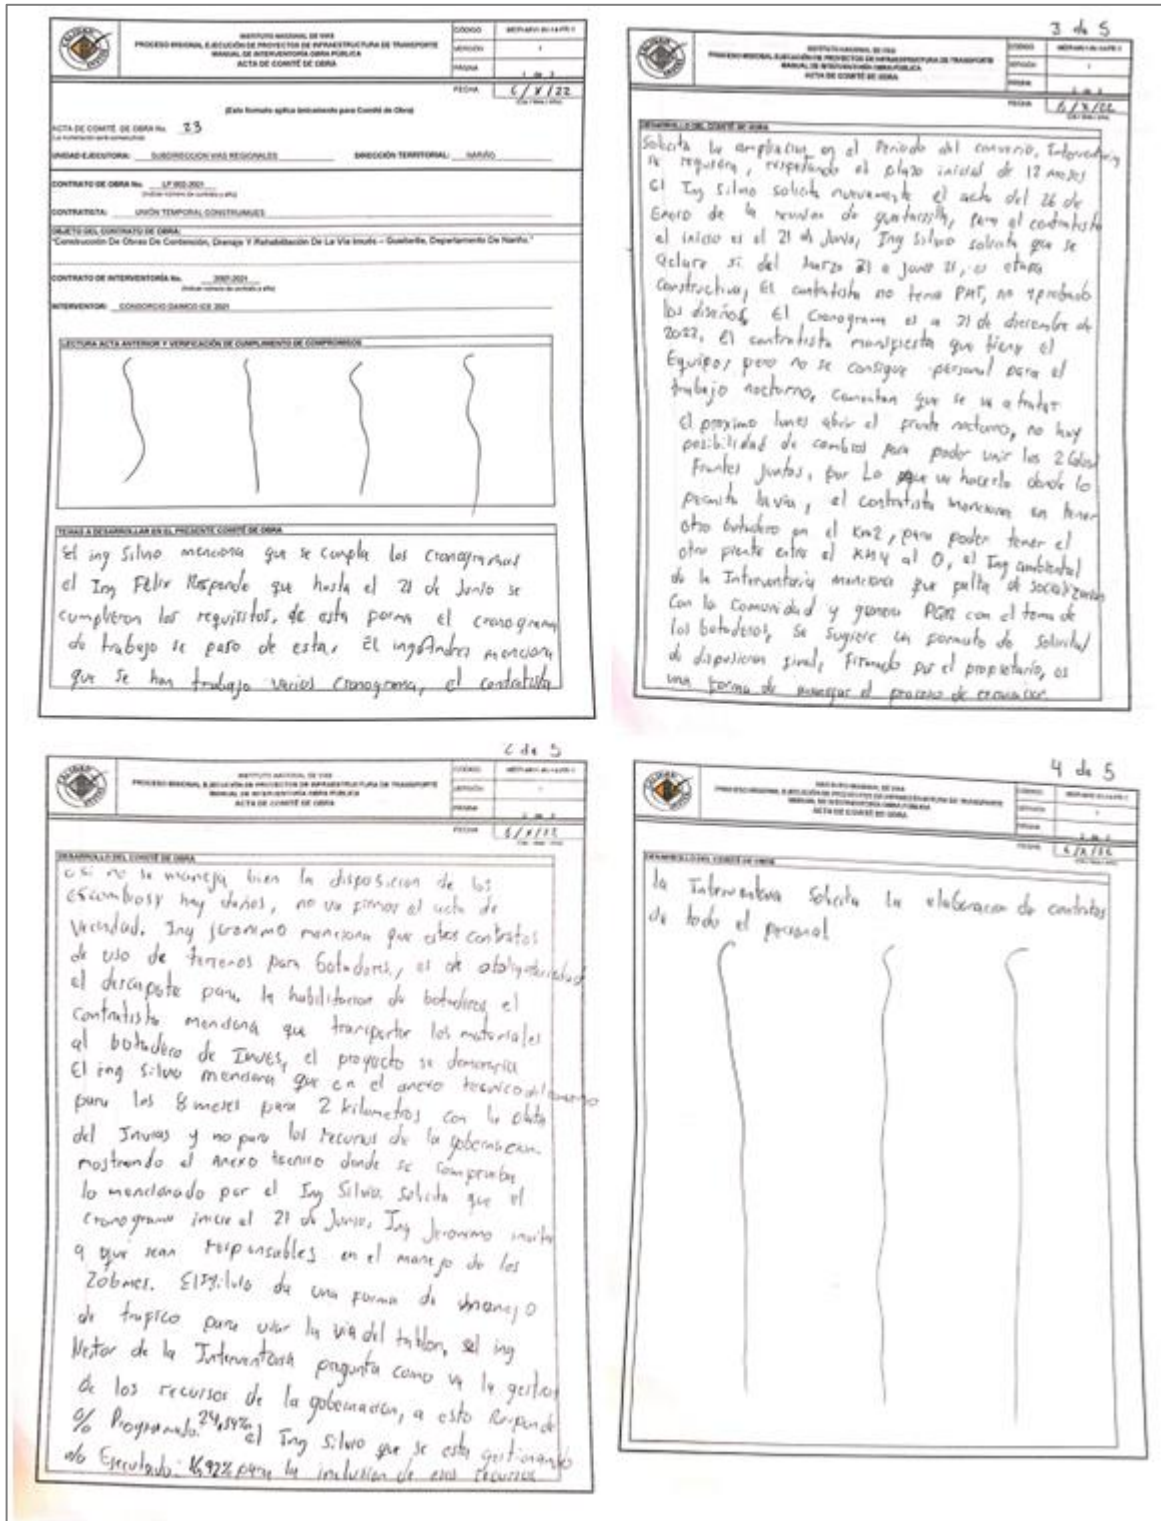 INSTITUTO NACIONAL DE VIAS
PROCESO MISIONAL EJECUCIÓN DE PROYECTOS DE INFRAESTRUCTURA DE TRANSPORTE
MANUAL DE INTERVENTORÍA OBRA PÚBLICA
ACTA DE COMITÉ DE OBRA
CÓDIGO
VERSIÓN 1
PÁGINA 1 de 3
FECHA 6/X/22
(Este formato aplica únicamente para Comité de Obra)
ACTA DE COMITÉ DE OBRA No. 23
UNIDAD EJECUTORA: SUBDIRECCION VIAS REGIONALES DIRECCIÓN TERRITORIAL: NARIÑO
CONTRATO DE OBRA No. LP 002-2021
CONTRATISTA: UNIÓN TEMPORAL CONSTRUIMUES
OBJETO DEL CONTRATO DE OBRA:
"Construcción De Obras De Contención, Drenaje Y Rehabilitación De La Via Imués – Guaitarilla, Departamento De Nariño."
CONTRATO DE INTERVENTORÍA No. 3001-2021
INTERVENTOR: CONSORCIO DAIMCO ICE 2021
LECTURA ACTA ANTERIOR Y VERIFICACIÓN DE CUMPLIMIENTO DE COMPROMISOS
TEMAS A DESARROLLAR EN EL PRESENTE COMITÉ DE OBRA
El ing Silvio menciona que se cumpla los cronogramas
el Ing Félix Responde que hasta el 21 de Junio se
cumplieron los requisitos, de esta forma el cronograma
de trabajo se paso de estar, El ing Andres menciona
que se han trabajo varios cronograma, el contratista
2 de 5
INSTITUTO NACIONAL DE VIAS
PROCESO MISIONAL EJECUCIÓN DE PROYECTOS DE INFRAESTRUCTURA DE TRANSPORTE
MANUAL DE INTERVENTORÍA OBRA PÚBLICA
ACTA DE COMITÉ DE OBRA
FECHA 6/X/22
DESARROLLO DEL COMITÉ DE OBRA
o si no se maneja bien la disposicion de los
escombros y hay daños, no va firmar el acta de
Vecindad. Ing Jeronimo menciona que estos contratos
de uso de terrenos para botaderos, es de
el descapote para la habilitacion de botaderos el
contratista menciona que transportar los materiales
al botadero de Imues, el proyecto se demoraria
El ing Silvio menciona que en el anexo tecnico
para los 8 meses para 2 kilometros con la plata
del Invias y no para los recursos de la gobernacion.
mostrando el Anexo tecnico donde se comprueba
lo mencionado por el Ing Silvio. solicita que el
cronograma inicie el 21 de Junio, Ing Jeronimo invita
a que sean responsables en el manejo de los
da una forma de manejo
de trafico para usar la via del tablon, el ing
Nestor de la Interventoria pregunta como va la gestion
de los recursos de la gobernacion, a esto Responde
% Programado: el Ing Silvio que se esta gestionando
% Ejecutado: 16,92% para la inclusion de esos recursos
3 de 5
INSTITUTO NACIONAL DE VIAS
PROCESO MISIONAL EJECUCIÓN DE PROYECTOS DE INFRAESTRUCTURA DE TRANSPORTE
MANUAL DE INTERVENTORÍA OBRA PÚBLICA
ACTA DE COMITÉ DE OBRA
FECHA 6/X/22
DESARROLLO DEL COMITÉ DE OBRA
Solicita la ampliacion en el Periodo del convenio, Interventoria
se requiera, respetando el plazo inicial de 12 meses
El Ing Silvio solicita nuevamente el acta del 26 de
Enero de la reunion de guaitarilla, para el contratista
el inicio es el 21 de Junio, Ing Silvio solicita que se
aclare si del Marzo 21 a Junio 21, es etapa
constructiva, El contratista no tenia PMT, no aprobado
los diseños, El cronograma es a 31 de diciembre de
2022, El contratista manifiesta que tiene el
Equipo, pero no se consigue personal para el
trabajo nocturno, comentan que se va a tratar
el proximo lunes abrir el frente nocturno, no hay
posibilidad de cambios para poder unir los 2
Frentes Juntos, por Lo que va hacerlo donde lo
permita la via, el contratista menciona en tener
otro botadero en el Km2, para poder tener el
otro frente entre el KM4 al 0, el Ing ambiental
de la Interventoria menciona que falta de socializacion
Con la Comunidad y genera PQR con el tema de
los botaderos, Se sugiere un formato de solicitud
de disposicion final, Firmado por el propietario, es
una forma de manejar el proceso de
4 de 5
INSTITUTO NACIONAL DE VIAS
PROCESO MISIONAL EJECUCIÓN DE PROYECTOS DE INFRAESTRUCTURA DE TRANSPORTE
MANUAL DE INTERVENTORÍA OBRA PÚBLICA
ACTA DE COMITÉ DE OBRA
FECHA 6/X/22
DESARROLLO DEL COMITÉ DE OBRA
la Interventoria Solicita la elaboracion de contratos
de todo el personal